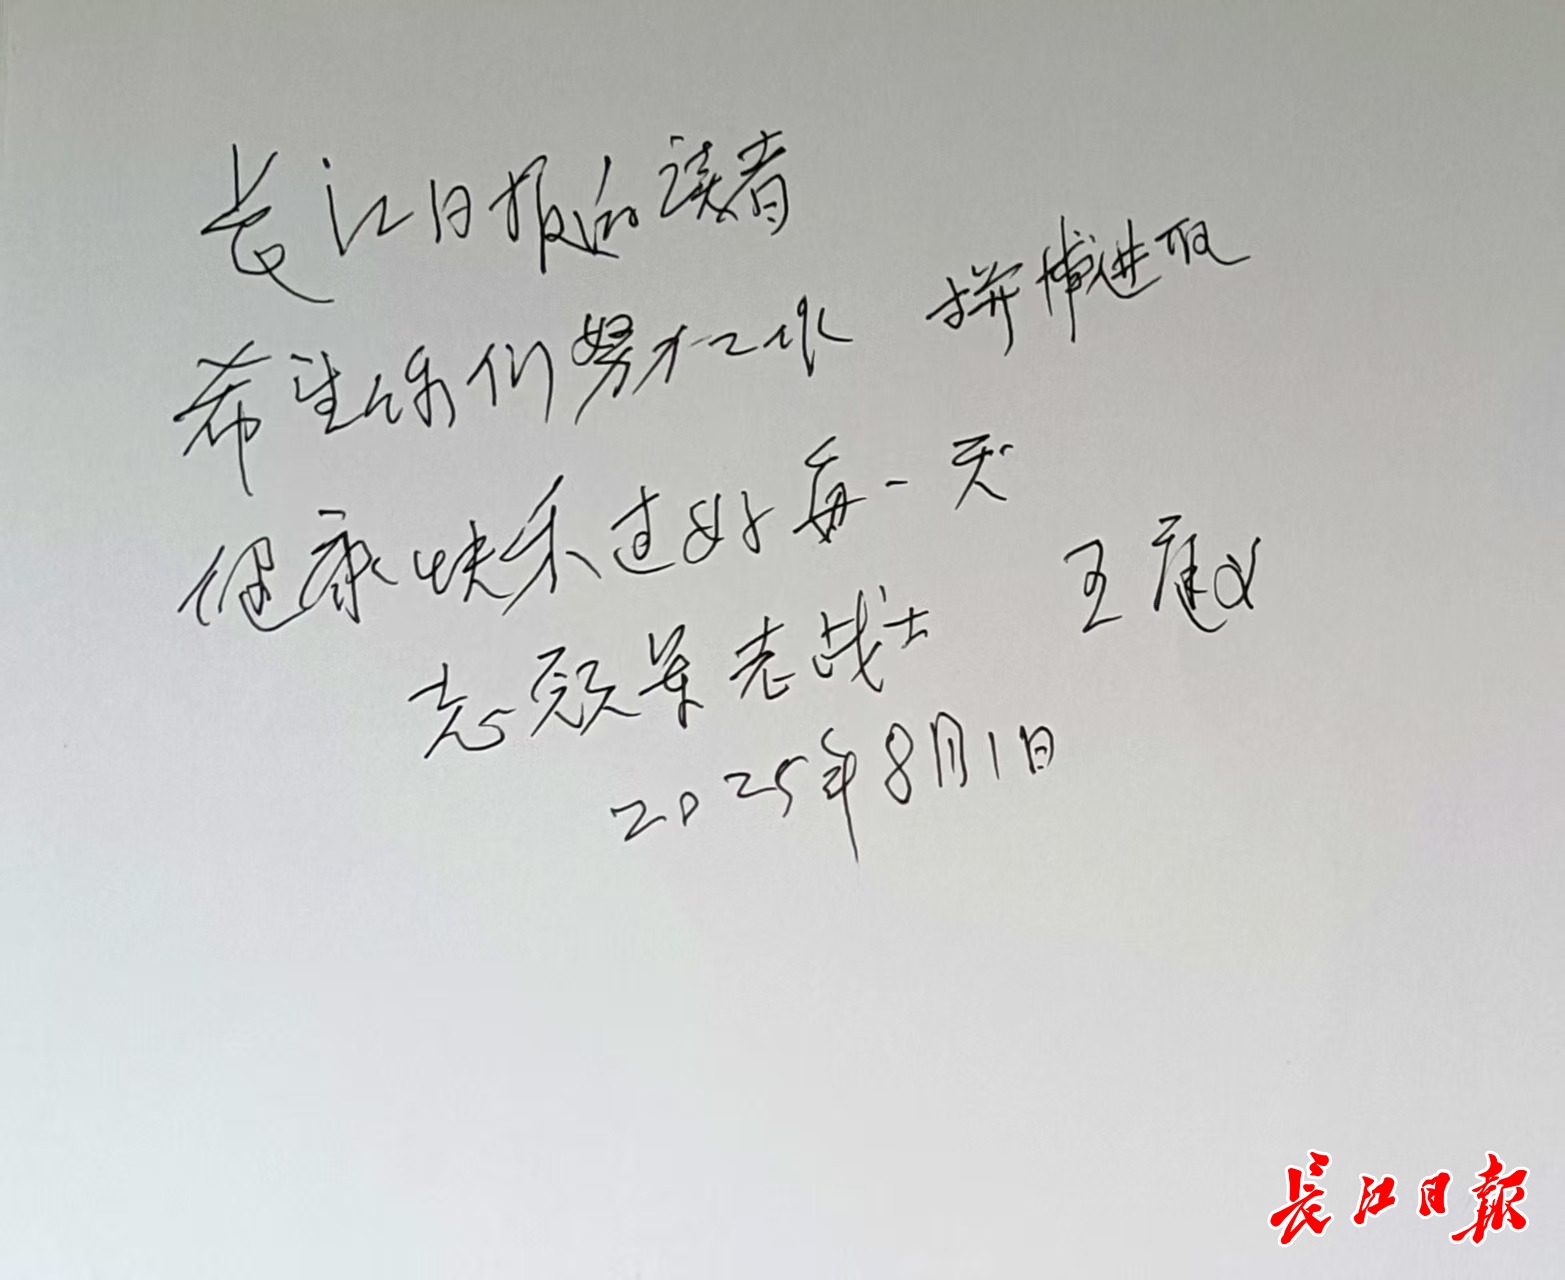 长江日报的读者
希望你们努力工作 拼搏进取
健康快乐过好每一天
志愿军老战士 王庭义
2025年8月1日
長江日報